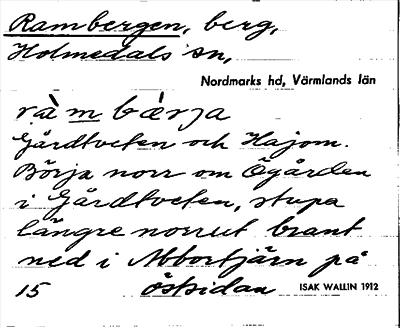 Rambergen, berg,
Holmedals sn,
Nordmarks hd, Värmlands län
ràm bǽrja
Gårdtveten och Hajom.
Börja norr om Ögården
i Gårdtveten, stupa
längre norrut brant
ned i Abbortjärn på
15 östsidan ISAK WALLIN 1912